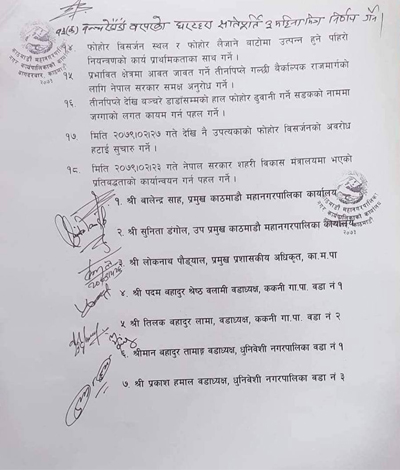 १३(क) बन्चरेडाँडा
१४ फोहोर विसर्जन स्थल र फोहोर लैजाने बाटोमा उत्पन्न हुने पहिरो
नियन्त्रणको कार्य प्राथमिकताका साथ गर्ने।
१५ प्रभावित क्षेत्रमा आवत जावत गर्ने तीनपिप्ले गल्छी बैकल्पिक राजमार्गको
लागि नेपाल सरकार समक्ष अनुरोध गर्ने।
१६ तीनपिप्ले देखि बञ्चरे डाडाँसम्मको हाल फोहर ढुवानी गर्ने सडकको नाममा
जग्गाको लगत कायम गर्न पहल गर्ने।
१७ मिति २०७९।०२।२७ गते देखि नै उपत्यकाको फोहोर विसर्जनको अवरोध
हटाई सुचारु गर्ने।
१८. मिति २०७९।०२।२३ गते नेपाल सरकार शहरी विकास मन्त्रालयमा भएको
प्रतिबद्धताको कार्यान्वयन गर्न पहल गर्ने।
१. श्री बालेन्द्र साह, प्रमुख काठमाडौ महानगरपालिका कार्यालय
२. श्री सुनिता डंगोल, उप प्रमुख काठमाडौ महानगरपालिका कार्यालय
३. श्री लोकनाथ पौड्याल, प्रमुख प्रशासकीय अधिकृत, का.म.पा
४. श्री पदम बहादुर श्रेष्ठ वलामी वडाध्यक्ष, ककनी गा.पा. वडा नं १
५ श्री तिलक बहादुर लामा, वडाध्यक्ष, ककनी गा.पा. वडा नं २
६. श्रीमान बहादुर तामाङ्ग वडाध्यक्ष, धुनिवेशी नगरपालिका वडा नं १
७. श्री प्रकाश हमाल वडाध्यक्ष, धुनिवेशी नगरपालिका वडा नं ३